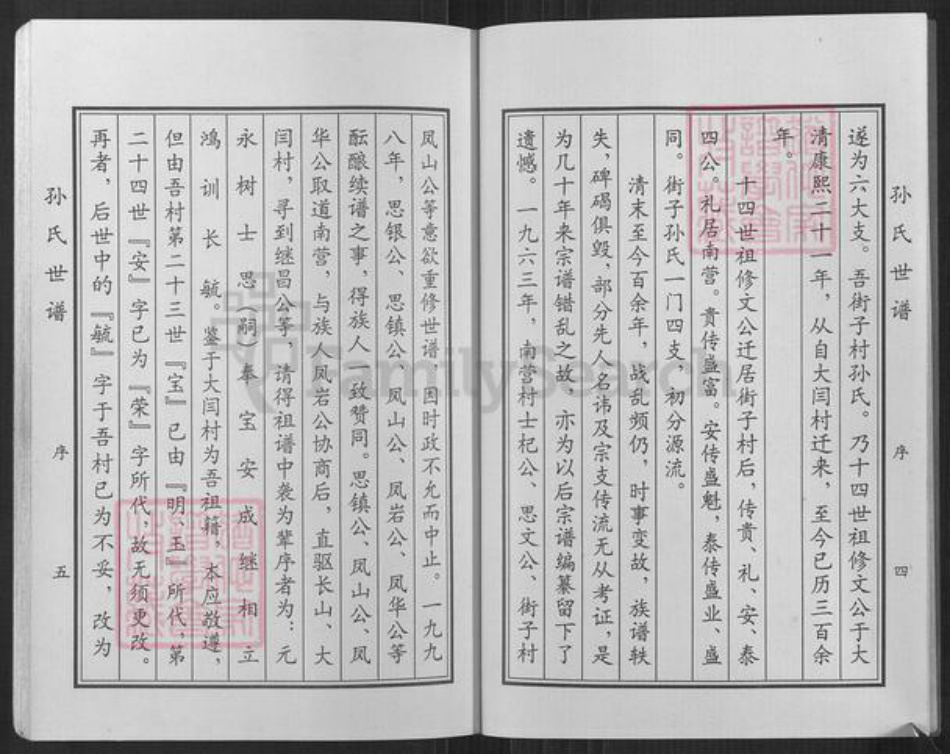 孙氏世谱
序
四
遂为六大支。吾街子村孙氏。乃十四世祖修文公于大
清康熙二十一年，从自大闫村迁来，至今已历三百余
年。
十四世祖修文公迁居街子村后，传贵、礼、安、泰
四公。礼居南营。贵传盛富。安传盛魁，泰传盛业、盛
同。街子孙氏一门四支，初分源流。
清末至今百余年，战乱频仍，时事变故，族谱轶
失，碑碣俱毁，部分先人名讳及宗支传流无从考证，是
为几十年来宗谱错乱之故，亦为以后宗谱编纂留下了
遗憾。一九六三年，南营村士杞公、思文公、街子村
凤山公等意欲重修世谱，因时政不允而中止。一九九
八年，思银公、思镇公、凤山公、凤岩公、凤华公等
酝酿续谱之事，得族人一致赞同。思镇公、凤山公、凤
华公取道南营，与族人凤岩公协商后，直驱长山、大
闫村，寻到继昌公等，请得祖谱中袭为辈序者为：元
永树士思（嗣）奉宝安成继相立
鸿训长毓。鉴于大闫村为吾祖籍，本应敬遵，
但由吾村第二十三世『宝』已由『明、玉』所代，第
二十四世『安』字已为『荣』字所代，故无须更改。
再者，后世中的『毓』字于吾村已为不妥，改为
孙氏世谱
序
五
FamilySearch